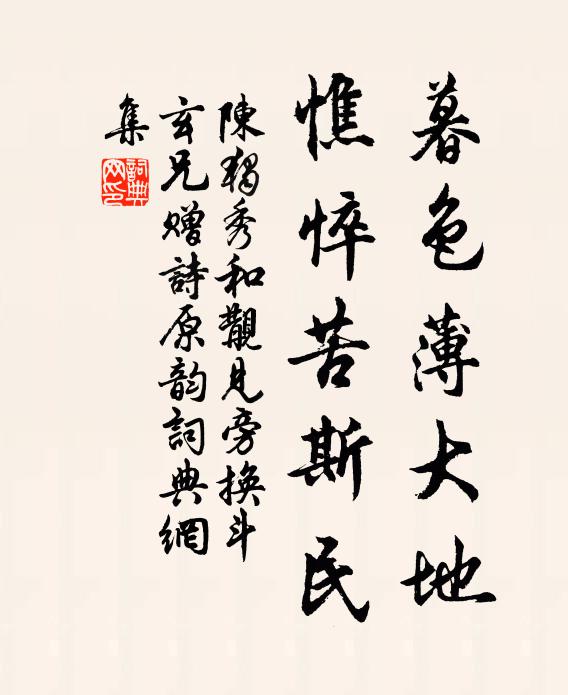 暮色薄大地
憔悴苦斯民
陳獨秀和觀見旁換斗
玄兄贈詩原韵詞典網
集
詞典網印